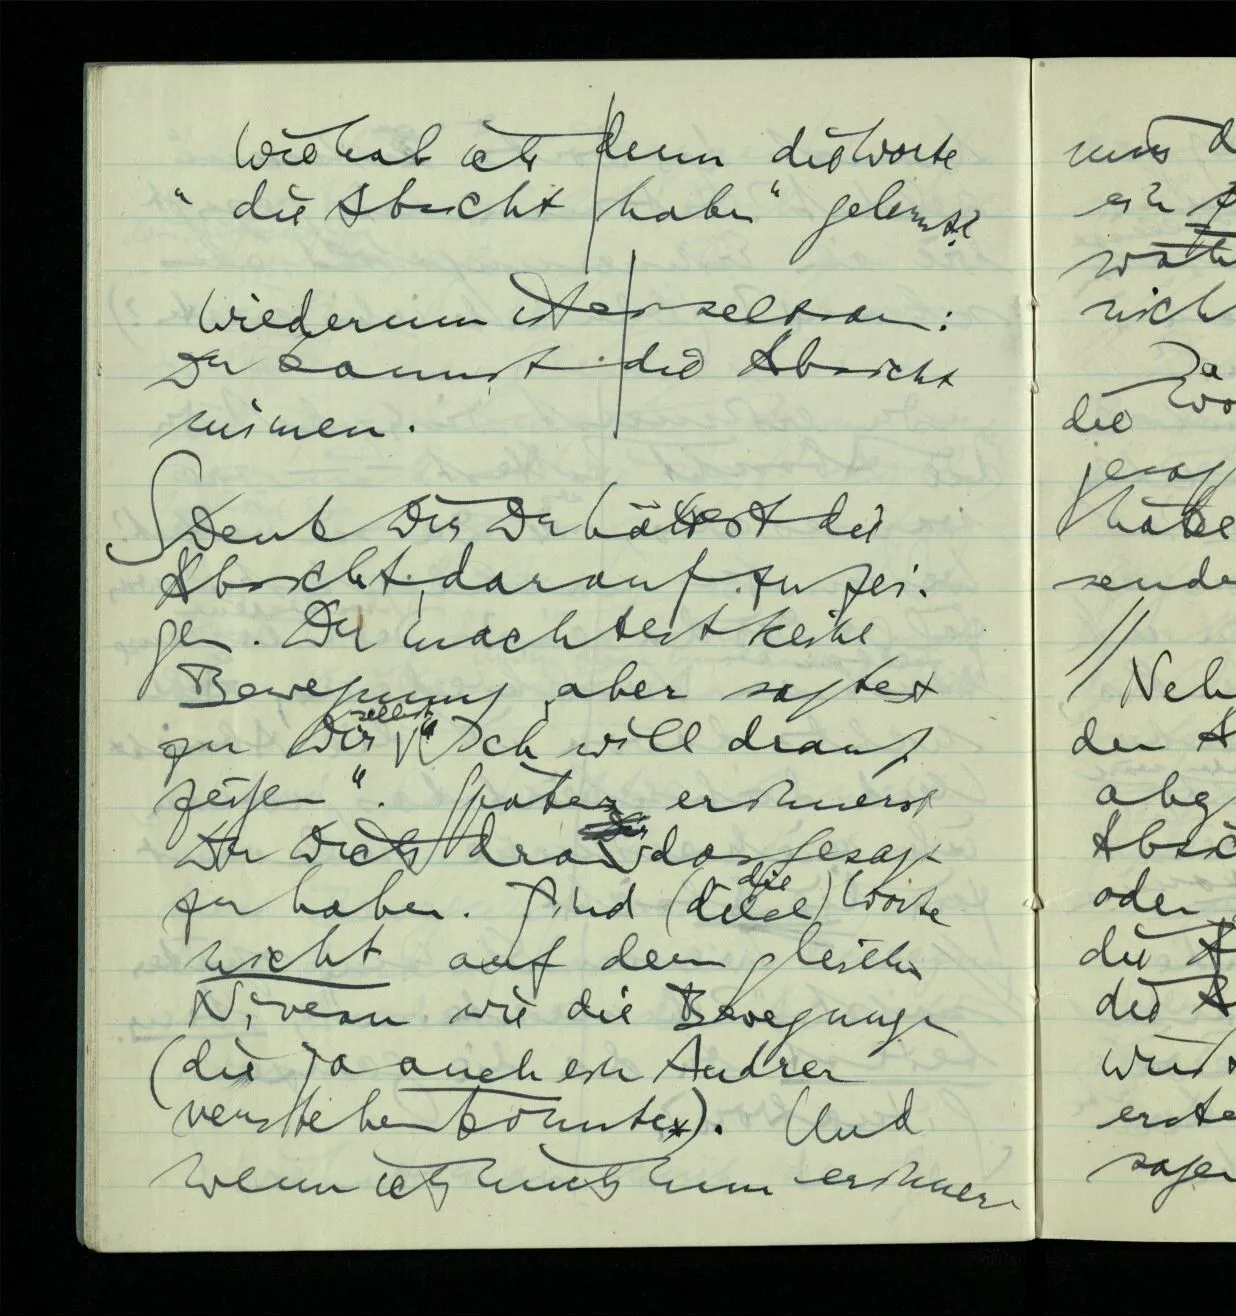 Wie hab ich denn die Worte
" die Absicht haben" gelernt?
Wiederum ist es seltsam:
Du kannst die Absicht
mimen.
S Denk Dir Du hättest die
Absicht, darauf zu zei-
gen. Du machtest keine
Bewegung, aber sagtest
zu Dir selbst "Ich will drauf
zeigen". Später erinnerst
Du Dich dran das gesagt
zu haben. Sind (diese) die Worte
nicht auf dem gleichen
Niveau wie die Bewegung
(die ja auch ein Andrer
verstehen könnte). Und
wenn ich mich nun erinnere
muß d
ein
wäh
nich
Ja
die Wo
gesag
hätte
sende
// Neh
den A
abg
Absic
oder
die A
die A
wür
erste
sagen